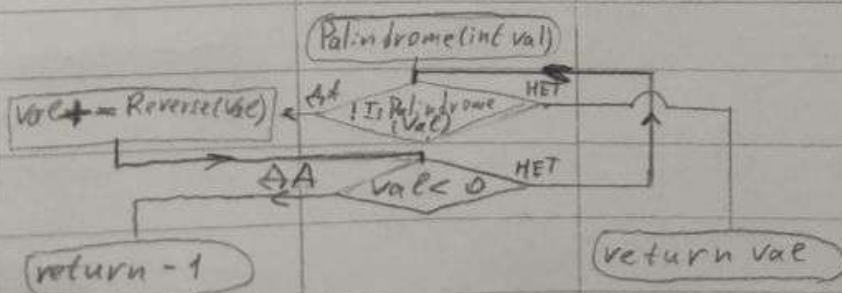 Palindrome(int val)
ДА
НЕТ
! IsPalindrome
(val)
val += Reverse(val)
ДА
val < 0
НЕТ
return -1
return val